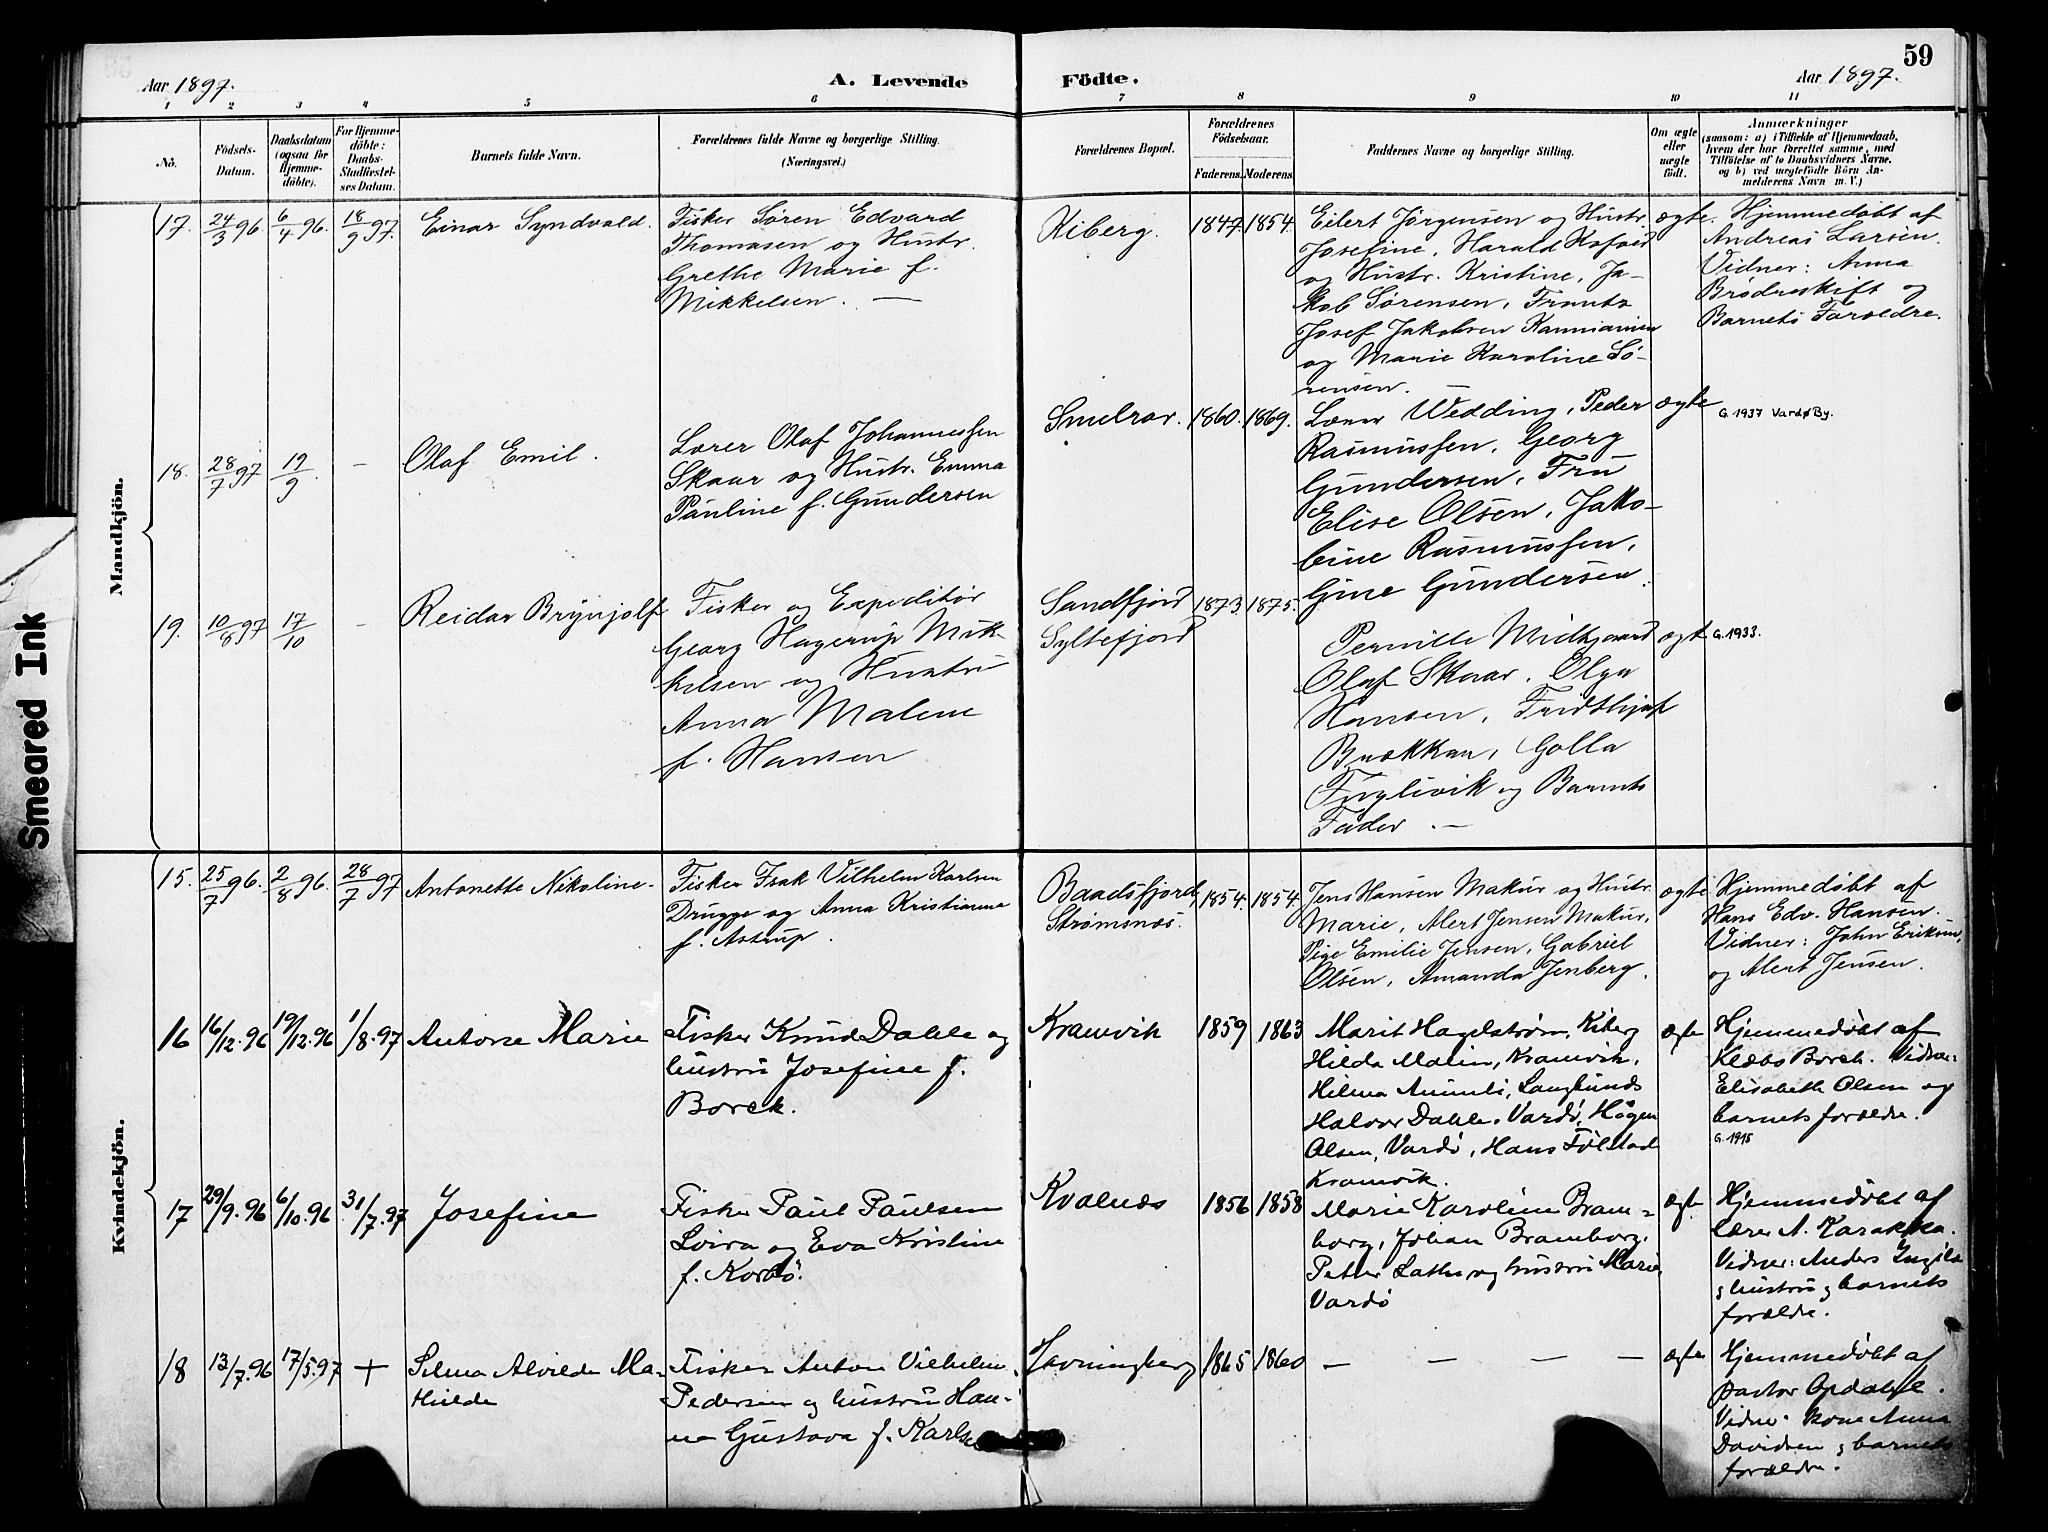 59
Aar 1897.
A. Levende Födte.
Aar 1897.
1 2 3 4 5 6 7 8 9 10 11
No.
Födsels-
Datum.
Daabsdatum
(ogsaa for
Hjemme-
döbte).
For Hjemme-
döbte:
Daabs-
Stadfæstel-
ses Datum.
Barnets fulde Navn.
Forældrenes fulde Navne og borgerlige Stilling.
(Næringsvei.)
Forældrenes Bopæl.
Forældrenes
Födselsaar.
Faderens. Moderens.
Faddernes Navne og borgerlige Stilling.
Om ægte
eller
uægte
født.
Anmærkninger
(saasom: a) i Tilfælde af Hjemmedaab,
hvem der har forrettet samme, med
Tilföielse af to Daabsvidners Navne,
og b) ved uægtefödte Börn An-
melderens Navn m. V.)
Mandkjön.
17. 24/3 96. 6/4 96. 18/9 97.
Einar Syndvald.
Fisker Søren Edvard
Thomasen og Hustr.
Grethe Marie f.
Mikkelsen. —
Kiberg.
1847. 1854.
Eilert Jørgensen og Hustr
Josefine, Harald Kofoed
og Hustr. Kristine, Ja-
kob Sørensen, Frants
Josef Jakobsen
og Marie Karoline Sø-
rensen.
ægte.
Hjemmedøbt af
Andreas Larsen.
Vidner: Anna
Brodreskift og
Barnets Foroldre.
18. 28/7 97 19/9. –
Olaf Emil.
Lærer Olaf Johannessen
Skaar og Hustr. Emma
Pauline f. Gundersen
Smelror.
1860. 1869.
Wedding, Peder
Rasmussen, Georg
Gundersen, Fru
Elise Olsen, Jako-
bine Rasmussen,
Gine Gundersen.
ægte
G. 1937 Vardø By.
19. 10/8 97 17/10 –
Reidar Brynjolf
Fisker og Expeditør
Georg Hagerup Mik-
kelsen og Hustru
Anna Malene
f. Hansen
Sandfjord
Syltefjord
1873. 1875.
Pernille Midtgaard
Olaf Skaar, Olga
Hansen, Fridthjof
Brækkan, Golla
Fuglevik og Barnets
Fader. —
ægt
G. 1933.
Kvindekjön.
15. 25/7 96. 2/8 96. 28/7 97
Antonette Nikoline-
Fisker Isak Vilhelm Karlsen
Drugge og Anna Kristianna
f. Astrup.
Baadsfjord,
Strømsnæs.
1854. 1854.
Jens Hansen Makur og Hustr.
Marie, Alert Jensen Makur,
Pige Emilie Jensen, Gabriel
Olsen, Amanda Jenberg.
ægte
Hjemmedøbt af
Hans Edv. Hansen.
Vidner: John Eriksen,
og Alert Jensen.
16 16/12.96 19/12.96 1/8.97
Antone Marie
Fisker Knud Dahle og
hustru Josefine f.
Borck.
Kramvik
1859 1863
Marit Hagelstrøm, Kiberg
Hilda Malin, Kramvik,
Hilma Langbunds
Halvor Dahle, Vardø, Hågen
Olsen, Vardø, Hans Følstad
Kramvik.
ægte
Hjemmedøbt af
Klæbs Borck. Vidner:
Elisabeth Olsen og
barnets forældre.
G. 1915
17 29/9.96 6/10.96 31/7.97
Josefine
Fisker Paul Paulsen
Loira og Eva Kristine
f. Korbø.
Kvalnæs
1856 1858
Marie Karoline Bram-
borg, Johan Bramborg,
Petter Lathi og hustru Marie,
Vardø
ægte
Hjemmedøbt af
lærer A. Karakka.
Vidner: Anders
g hustru g barnets
forældre.
18 13/7.96 17/5.97 +
Selma Alvilde Ma-
thilde
Fisker Anton Vilhelm
Pedersen g hustru Han-
na Gustava f. Karlsen
Havningberg
1865 1860
— — — —
ægte
Hjemmedøbt af
pastor Opdahl.
Vidner: kone Anna
Davidsen g barnets
forældre.
Smeared Ink